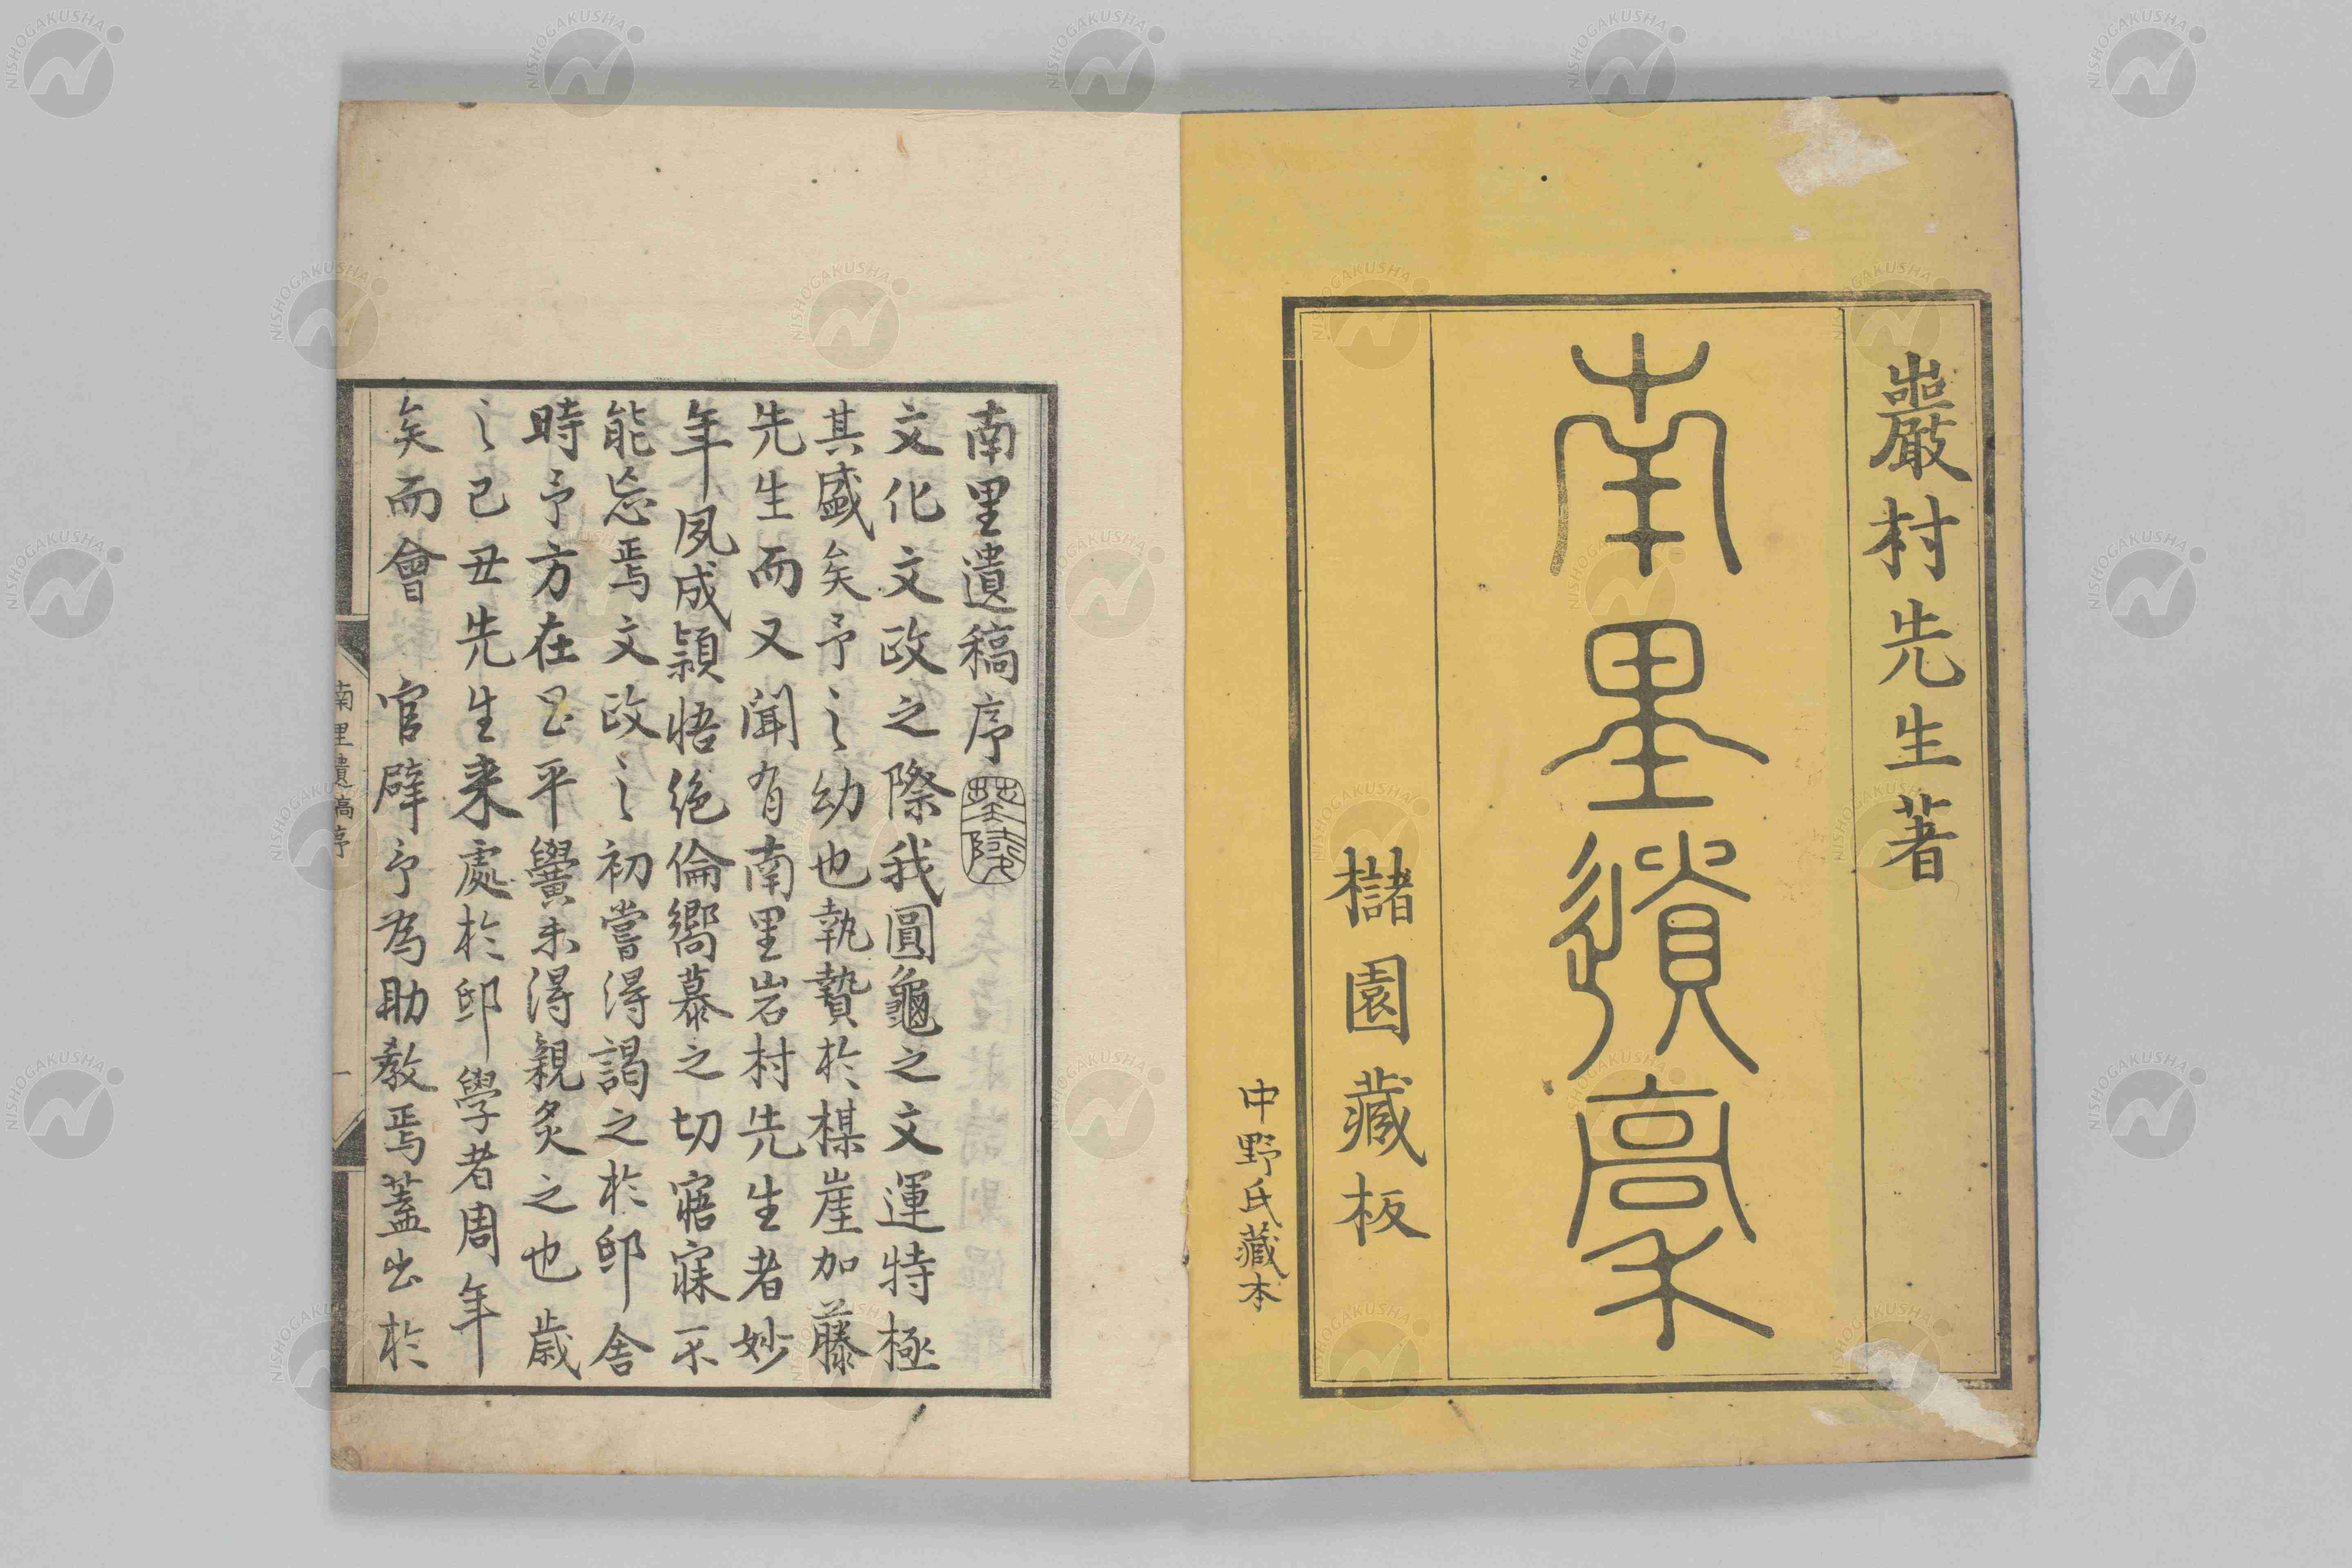 巖村先生著
南里遺稾
櫧園藏板
中野氏藏本
南里遺稿序
文化文政之際我圓龜之文運特極
其盛矣予之幼也執贄於楳崖加藤
先生而又聞有南里岩村先生者妙
年夙成頴悟絶倫嚮慕之切寤寐不
能忘焉文政之初嘗得謁之於邸舍
時予方在昌平黌未得親炙之也歲
之己丑先生来處於邸學者周年
矣而會　官辟予為助教焉蓋出於
南里遺稿序
一
NISHOGAKUSHA